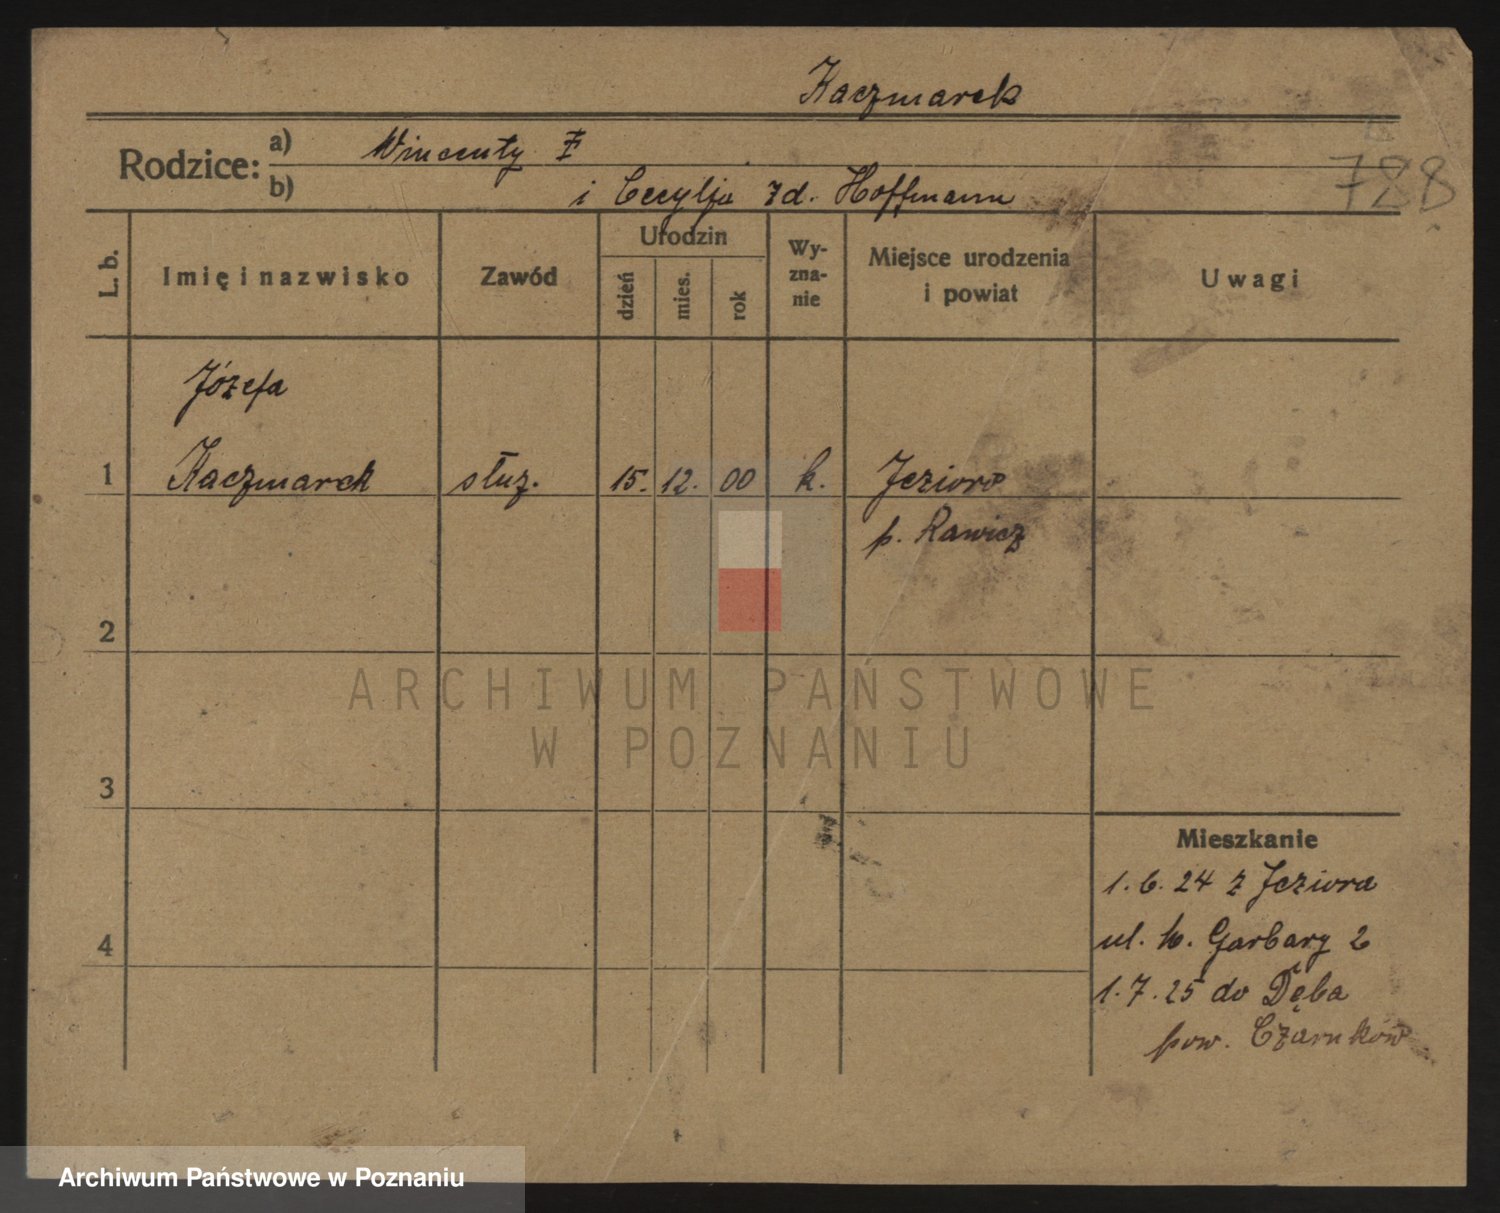 Kaczmarek
Rodzice: a) Wincenty
b) i Cecylja zd. Hoffmann
788
L. b.
Imię i nazwisko
Zawód
Urodzin
dzień
mies.
rok
Wy-
zna-
nie
Miejsce urodzenia
i powiat
Uwagi
Józefa
1 Kaczmarek służ. 15. 12. 00 k. Jezioro
p. Rawicz
2
3
4
Mieszkanie
1. 6. 24 z Jeziora
ul. W. Garbary 2
1. 7. 25 do Dęba
pow. Czarnków
ARCHIWUM PAŃSTWOWE
W POZNANIU
Archiwum Państwowe w Poznaniu